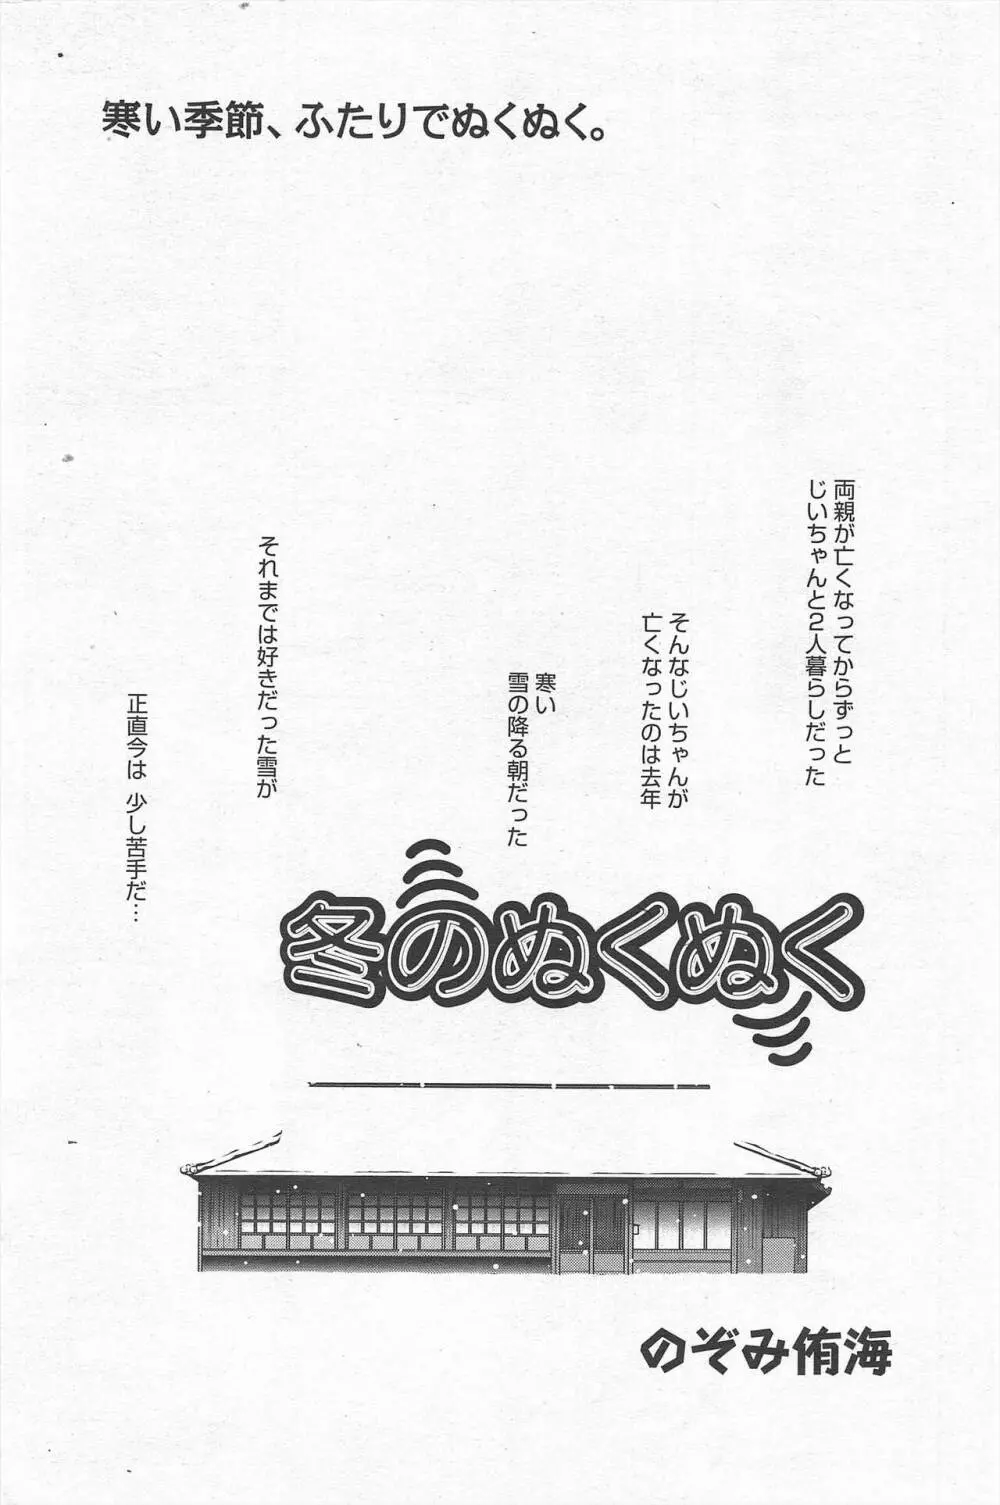 寒い季節、ふたりでぬくぬく。
両親が亡くなってからずっと
じいちゃんと2人暮らしだった
そんなじいちゃんが
亡くなったのは去年
寒い
雪の降る朝だった
それまでは好きだった雪が
正直今は 少し苦手だ…
冬のぬくぬく
のぞみ侑海